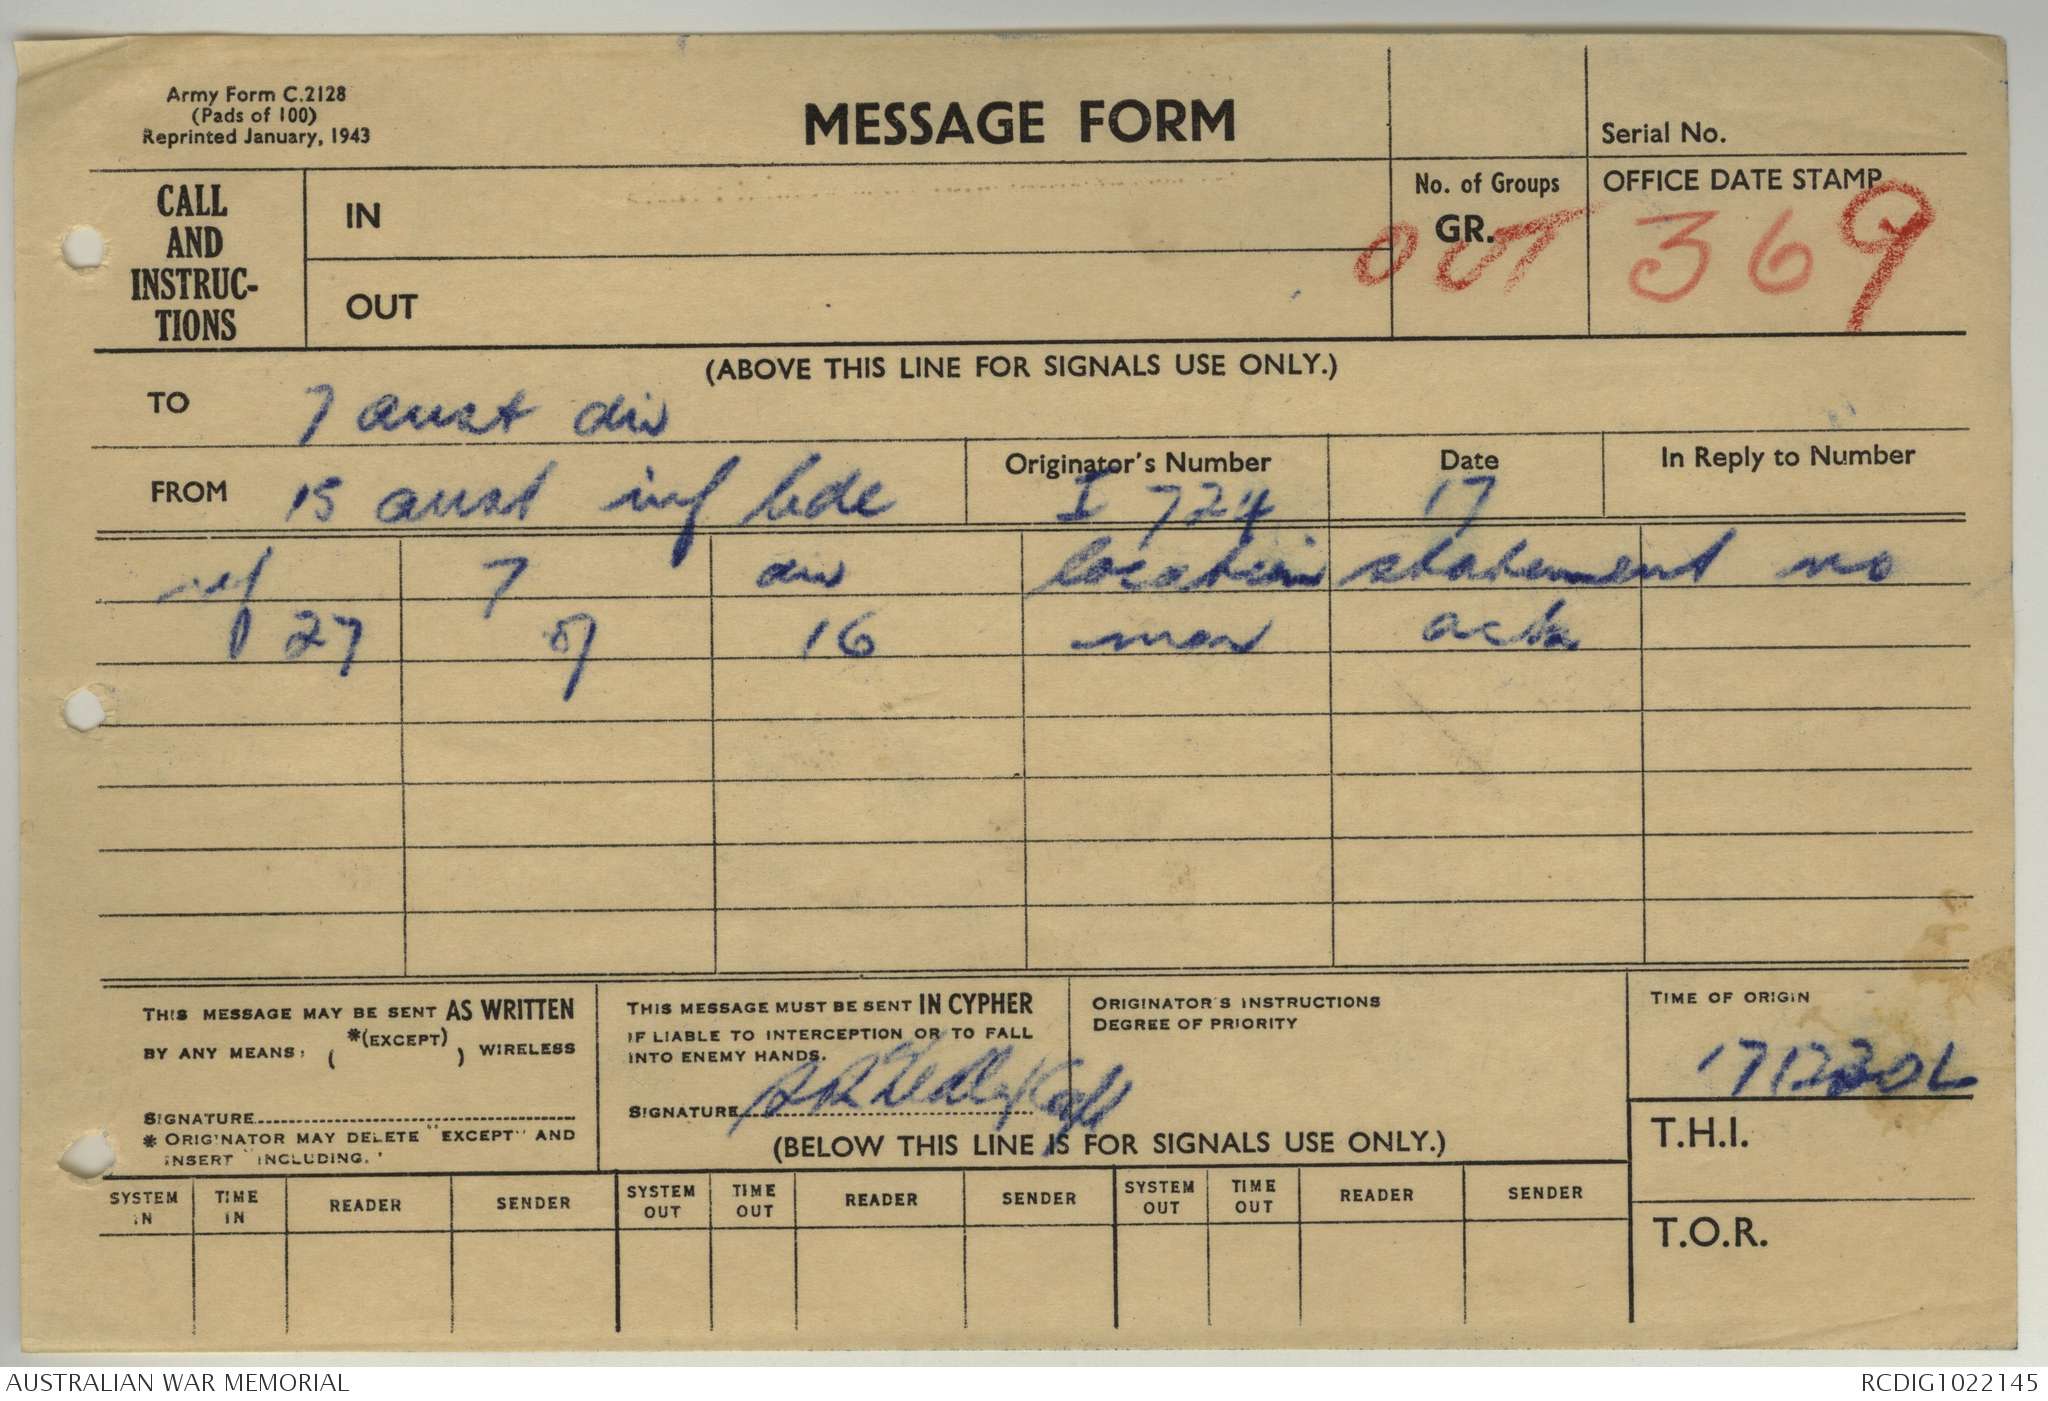 Army Form C.2128
(Pads of 100)
Reprinted January, 1943
MESSAGE FORM
Serial No.
CALL
AND
INSTRUC-
TIONS
IN
OUT
No. of Groups
GR.
OFFICE DATE STAMP
OUT 369
(ABOVE THIS LINE FOR SIGNALS USE ONLY.)
TO 7 aust div
FROM 15 aust inf bde
Originator's Number
I 724
Date
17
In Reply to Number
ref 7 div location statement no
27 of 16 mar ack
THIS MESSAGE MAY BE SENT AS WRITTEN
BY ANY MEANS: ( *(EXCEPT) ) WIRELESS
SIGNATURE
* ORIGINATOR MAY DELETE "EXCEPT" AND
INSERT "INCLUDING."
THIS MESSAGE MUST BE SENT IN CYPHER
IF LIABLE TO INTERCEPTION OR TO FALL
INTO ENEMY HANDS.
SIGNATURE Capt
ORIGINATOR'S INSTRUCTIONS
DEGREE OF PRIORITY
TIME OF ORIGIN
171230L
(BELOW THIS LINE IS FOR SIGNALS USE ONLY.)
T.H.I.
T.O.R.
SYSTEM IN TIME IN READER SENDER SYSTEM OUT TIME OUT READER SENDER SYSTEM OUT TIME OUT READER SENDER
AUSTRALIAN WAR MEMORIAL
RCDIG1022145